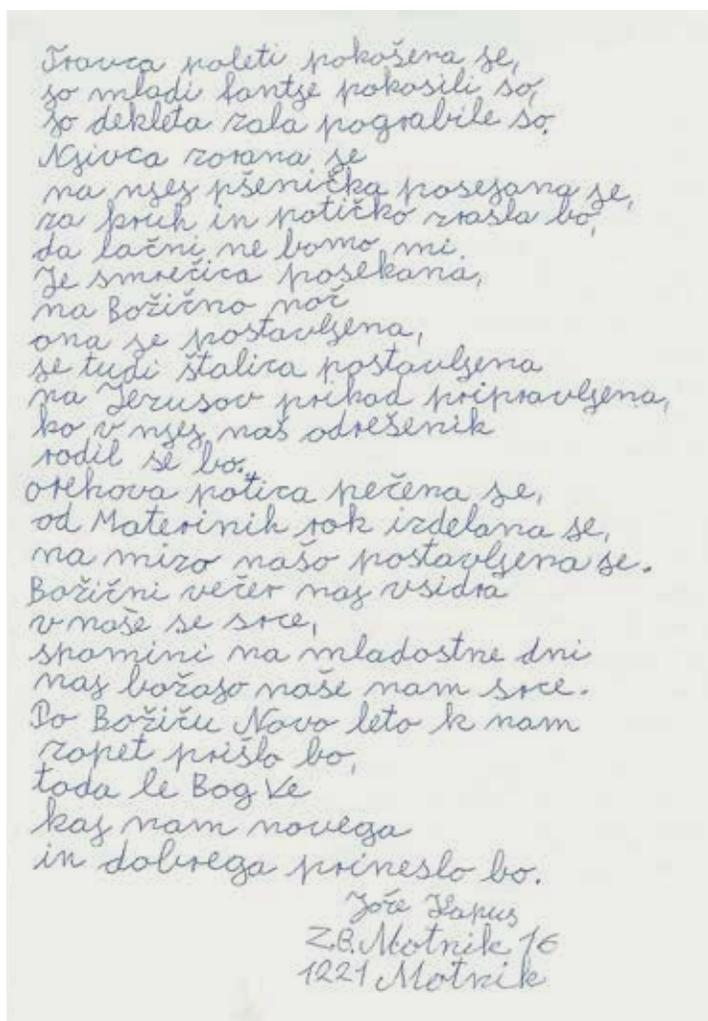 Travca poleti pokošena je,
jo mladi fantje pokosili so,
jo dekleta zala pograbile so.
Njivca zorana je
na njej pšenička posejana je,
za kruh in potičko zrasla bo,
da lačni ne bomo mi.
Je smrečica posekana,
na Božično noč
ona je postavljena,
je tudi štalica postavljena
na Jezusov prihod pripravljena,
ko v njej naš odrešenik
rodil se bo.
orehova potica pečena je,
od Materinih rok izdelana je,
na mizo našo postavljena je.
Božični večer naj vsidra
v naše se srce,
spomini na mladostne dni
naj božajo naše nam srce.
Po Božiču Novo leto k nam
zopet prišlo bo,
toda le Bog Ve
kaj nam novega
in dobrega prineslo bo.
Jože
Z.B. Motnik 16
1221 Motnik